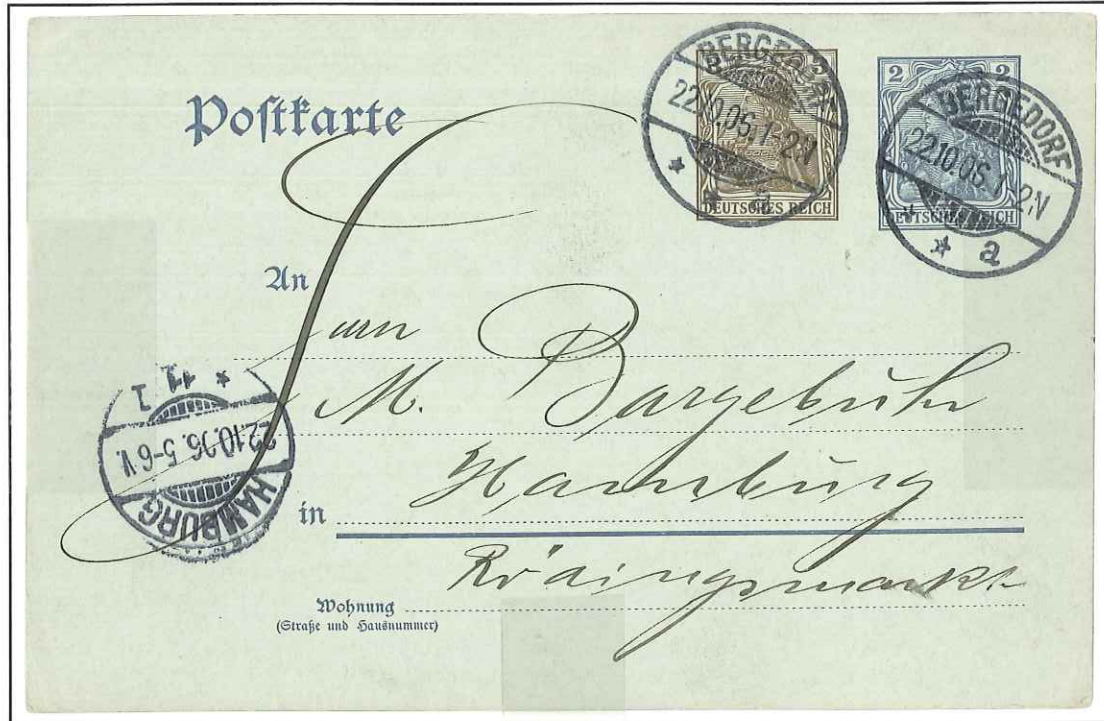 Postkarte
3
BERGEDORF
22.10.06.1-2N
a
DEUTSCHES REICH
2 2
BERGEDORF
22.10.06.1-2N
a
DEUTSCHES REICH
An
Herrn
M. Bargebuhr
Hamburg
in
Rödingsmarkt
Wohnung
(Straße und Hausnummer)
HAMBURG
22.10.06.5-6V.
* 11 1